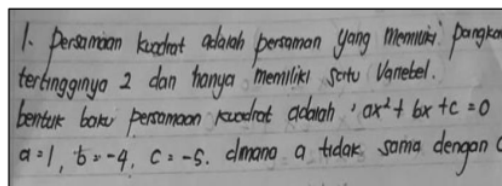 1. persamaan kuadrat adalah persaman yang memiliki pangka
tertingginya 2 dan hanya memiliki satu Variebel.
bentuk baku persamaan kuadrat adalah : ax² + bx + c = 0
a = 1, b = -4, c = -5. dimana a tidak sama dengan